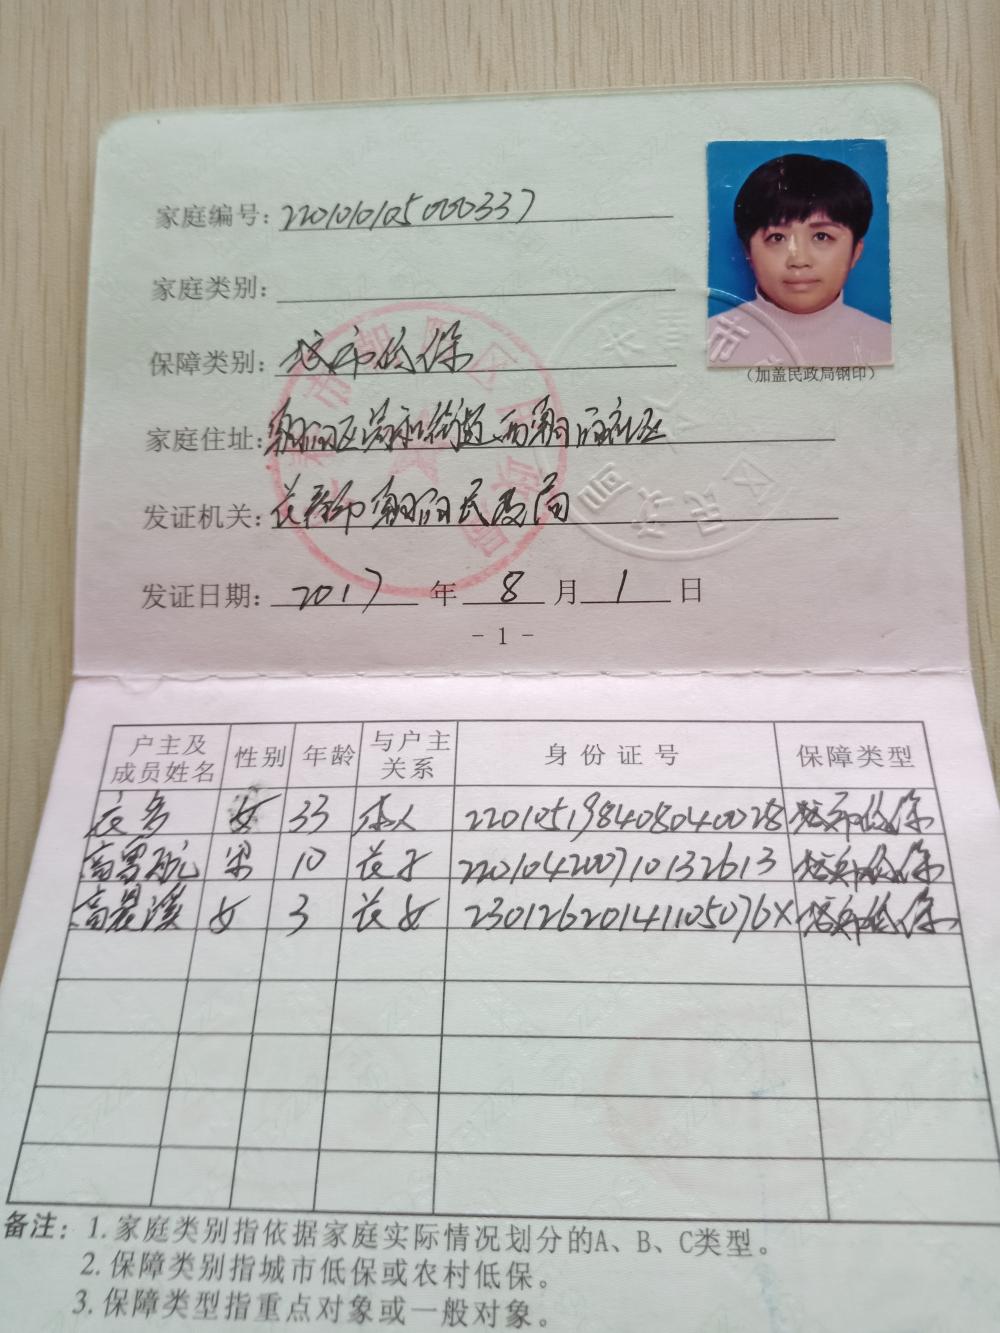 家庭编号: 22010105000337
家庭类别:
保障类别: 城市低保
家庭住址: 朝阳区 街道 社区
发证机关: 长春市朝阳民政局
发证日期: 2017 年 8 月 1 日
(加盖民政局钢印)
- 1 -
户主及成员姓名 性别 年龄 与户主关系 身份证号 保障类型
女 33 本人 220105198408040028 城市低保
高 男 10 长子 220104200710132613 城市低保
高晨溪 女 3 长女 23012620141105076X 城市低保
备注: 1. 家庭类别指依据家庭实际情况划分的A、B、C类型。
2. 保障类别指城市低保或农村低保。
3. 保障类型指重点对象或一般对象。